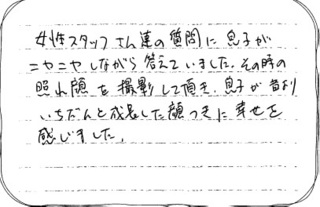 女性スタッフさん達の質問に息子が
ニヤニヤしながら答えていました。その時の
照れ顔を撮影して頂き、息子が昔より
いちだんと成長した顔つきに幸せを
感じました。